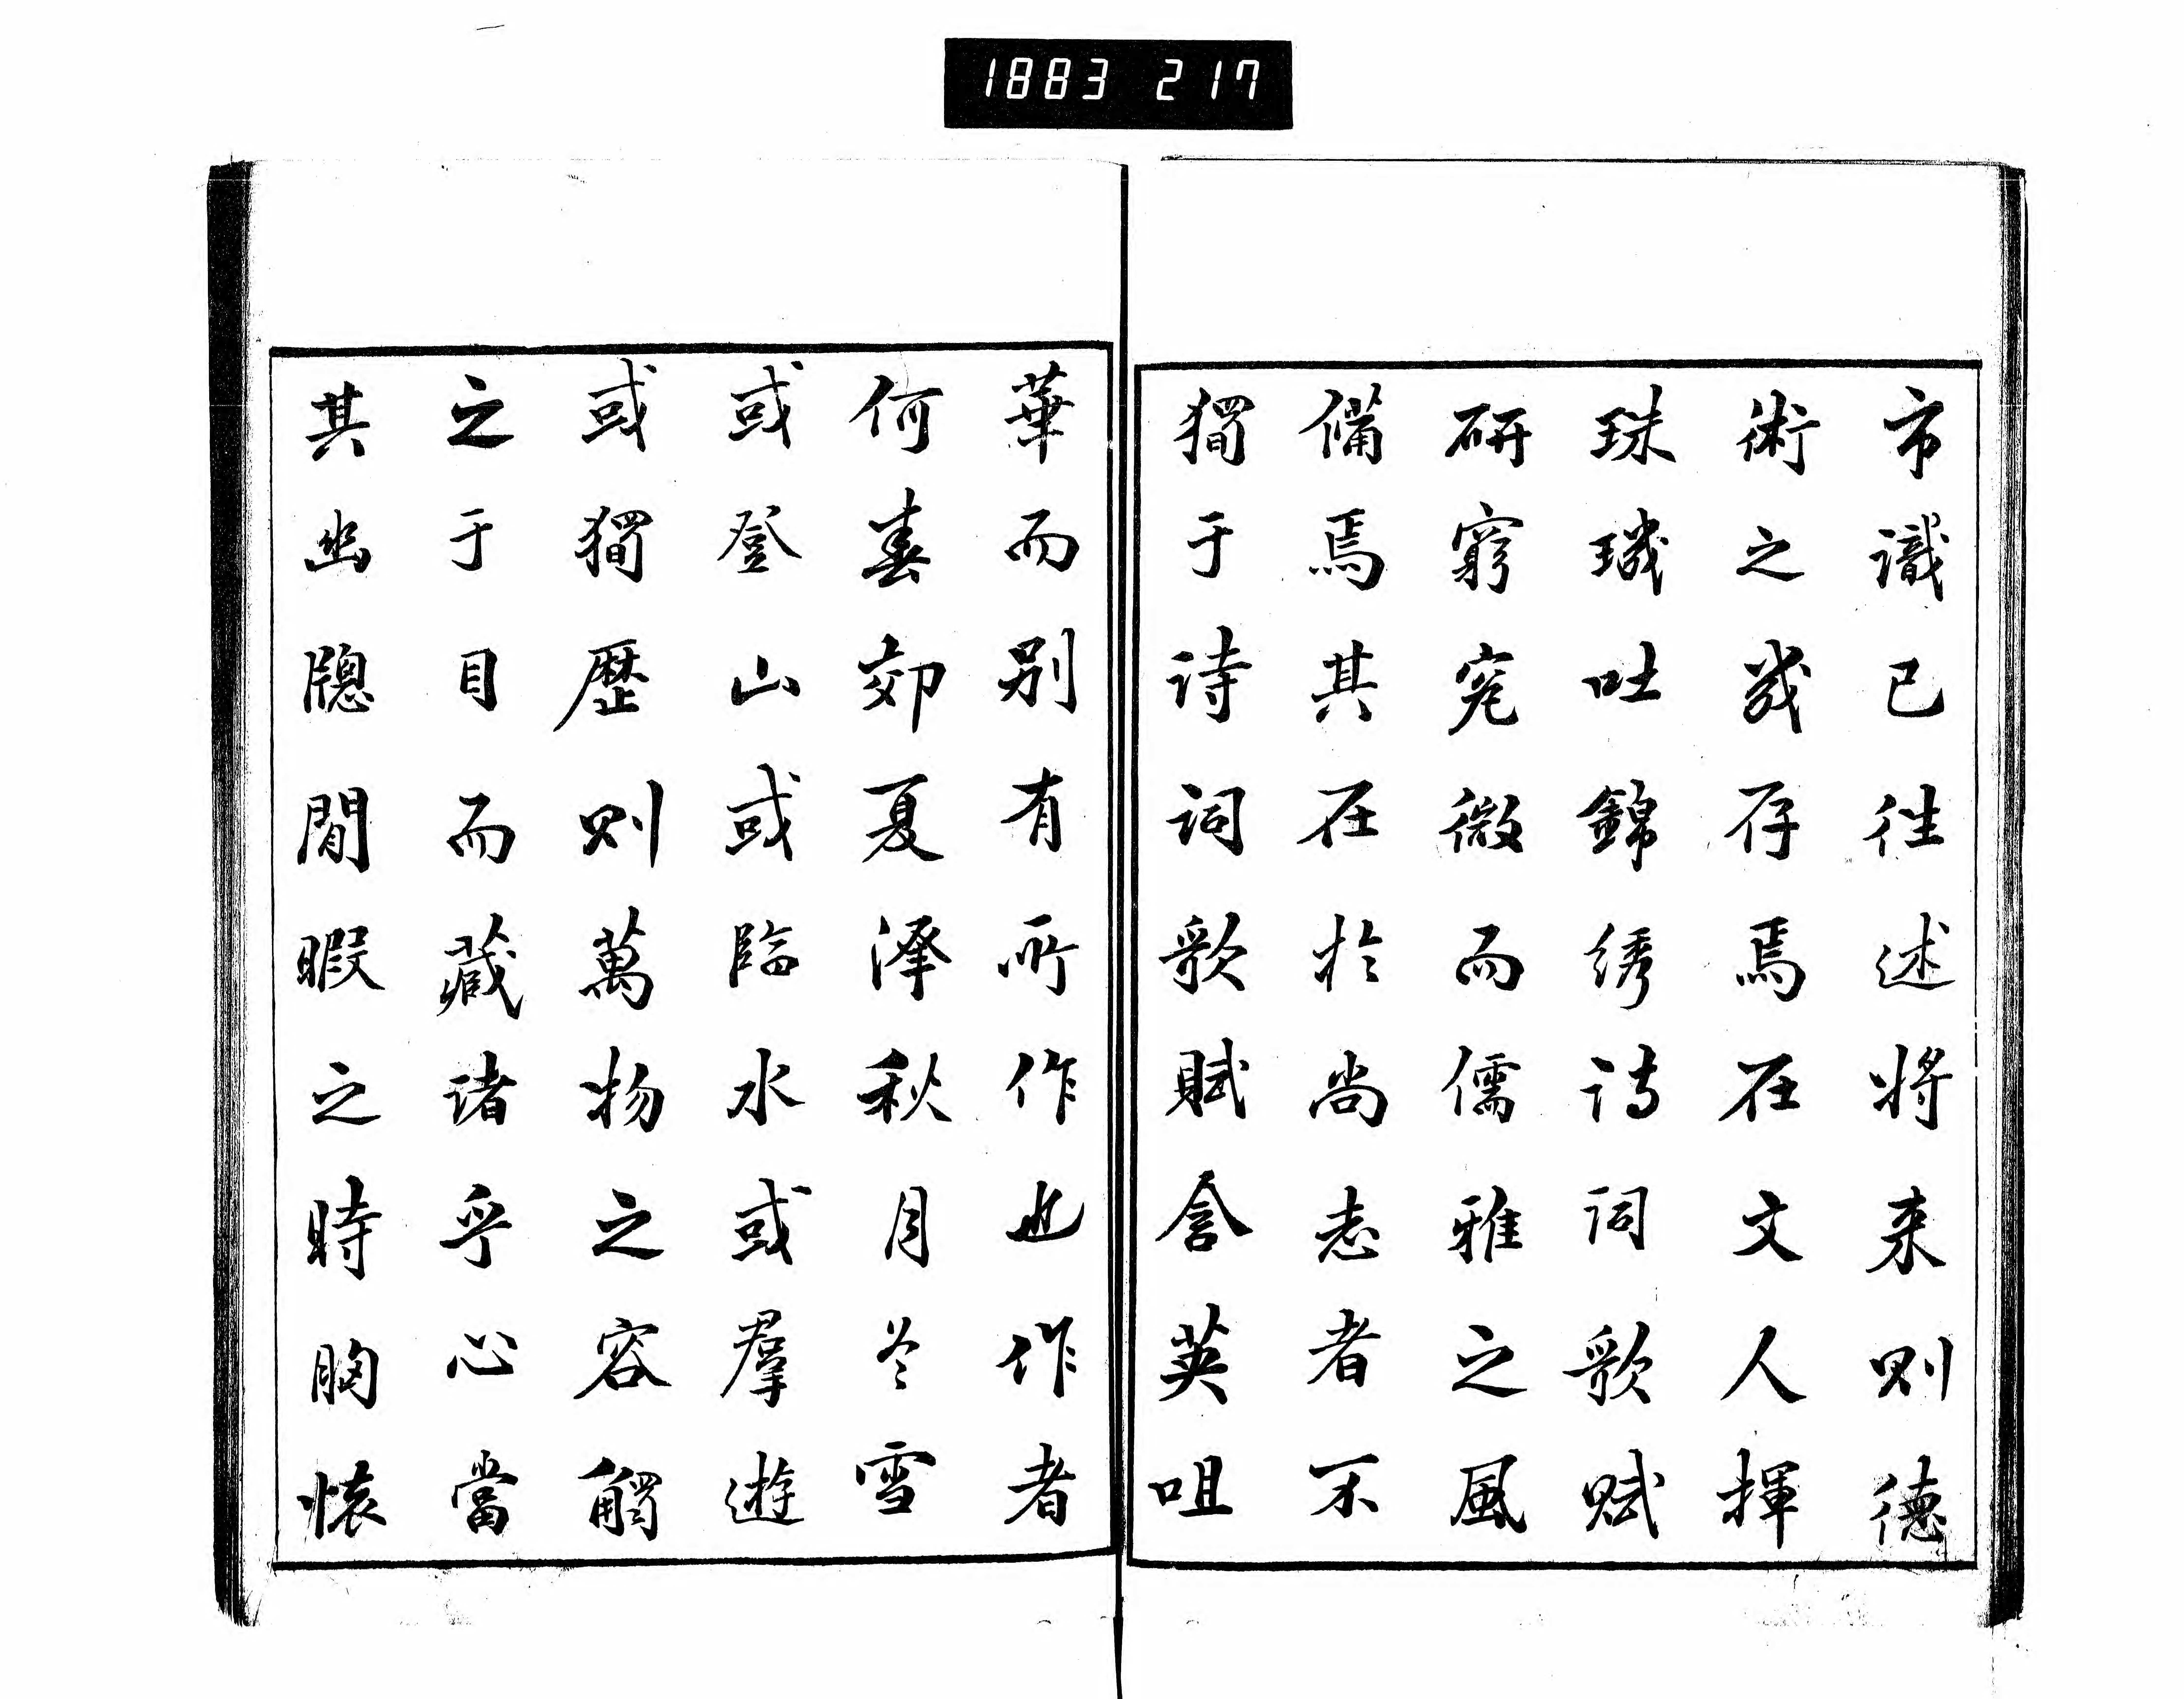 1883 217
市識已往述將来則德
術之幾存焉在文人揮
珠璣吐錦綉詩詞歌賦
研窮究微而儒雅之風
備焉其在於尚志者不
獨于詩詞歌賦含英咀
華而别有所作也作者
何春郊夏澤秋月冬雪
或登山或臨水或羣遊
或獨歷則萬物之容觸
之于目而藏诸乎心當
其幽牕閒暇之時胸懷